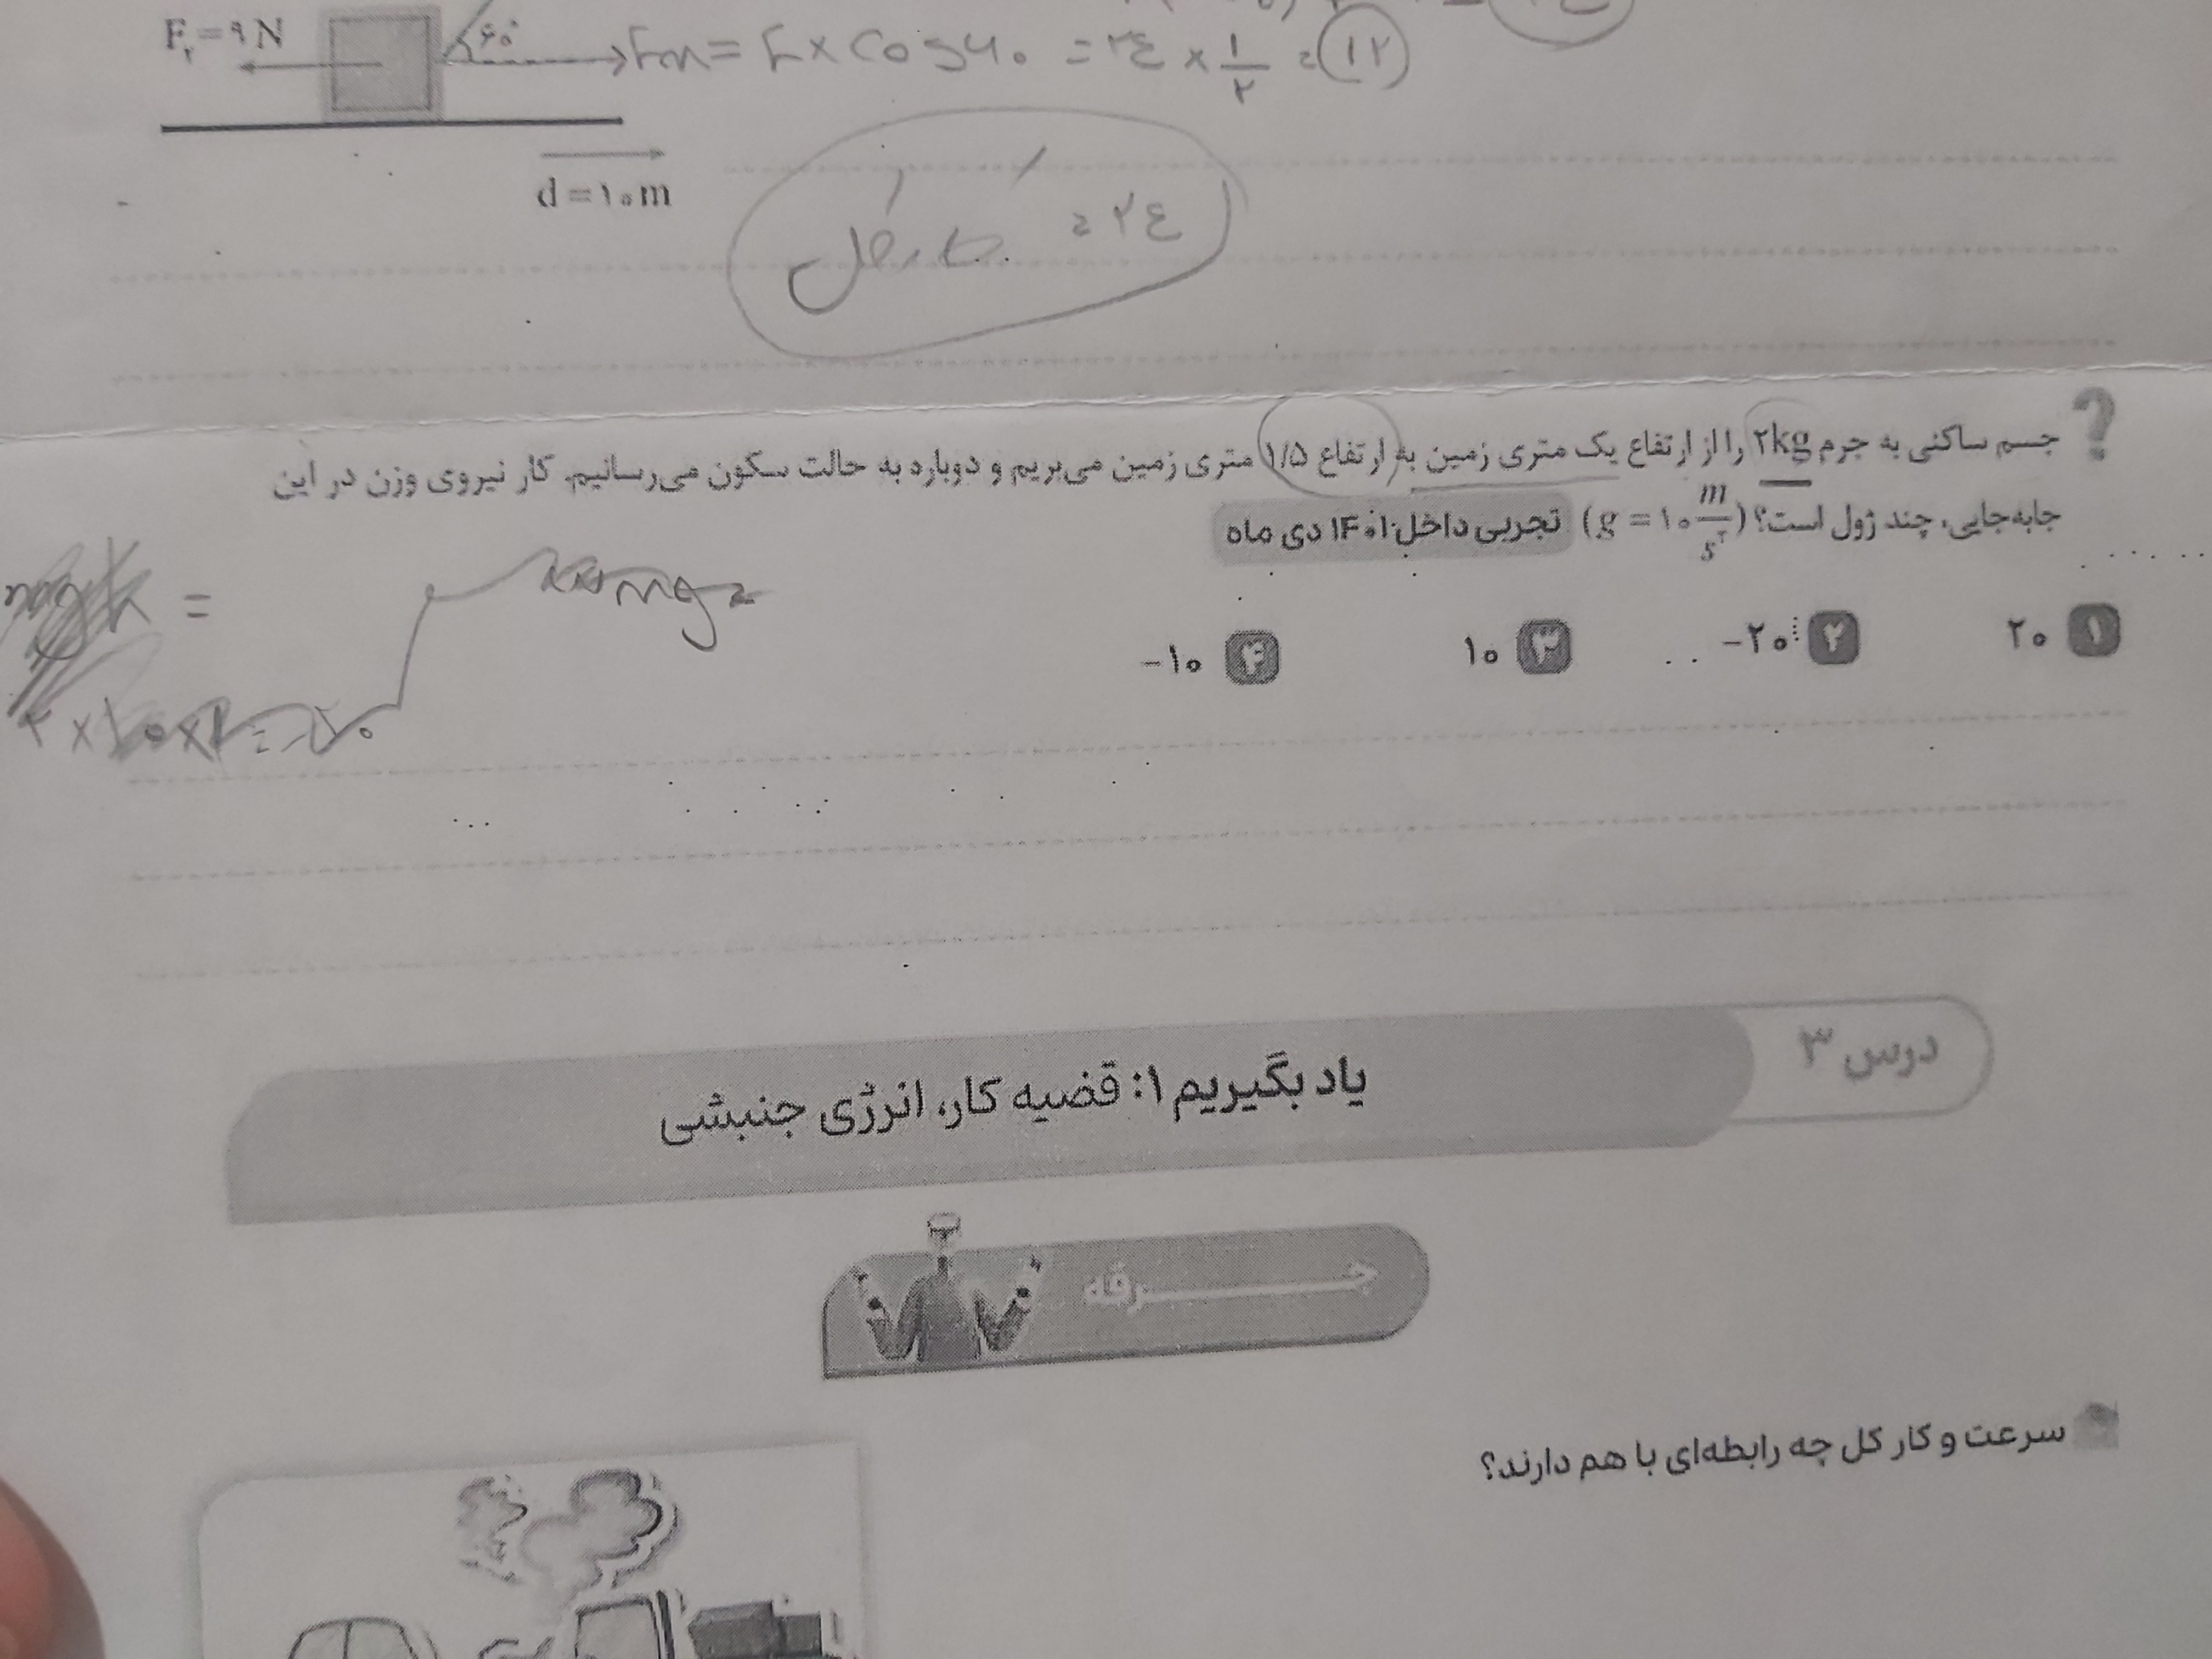 F₂=۹N ۶۰° Fx = F × Cos ۶۰ = ۲٤ × ۱/۲ = ۱۲
d=۱۰m
= ۲٤
جسم ساکنی به جرم ۲kg را از ارتفاع یک متری زمین به ارتفاع ۱/۵ متری زمین می‌بریم و دوباره به حالت سکون می‌رسانیم. کار نیروی وزن در این
جابه‌جایی، چند ژول است؟ (g = ۱۰ m/s²) تجربی داخل ۱۴۰۱ دی ماه
۱ ۲۰ ۲ -۲۰ ۳ ۱۰ ۴ -۱۰
درس ۳
یاد بگیریم ۱: قضیه کار، انرژی جنبشی
جـــرقه
سرعت و کار کل چه رابطه‌ای با هم دارند؟